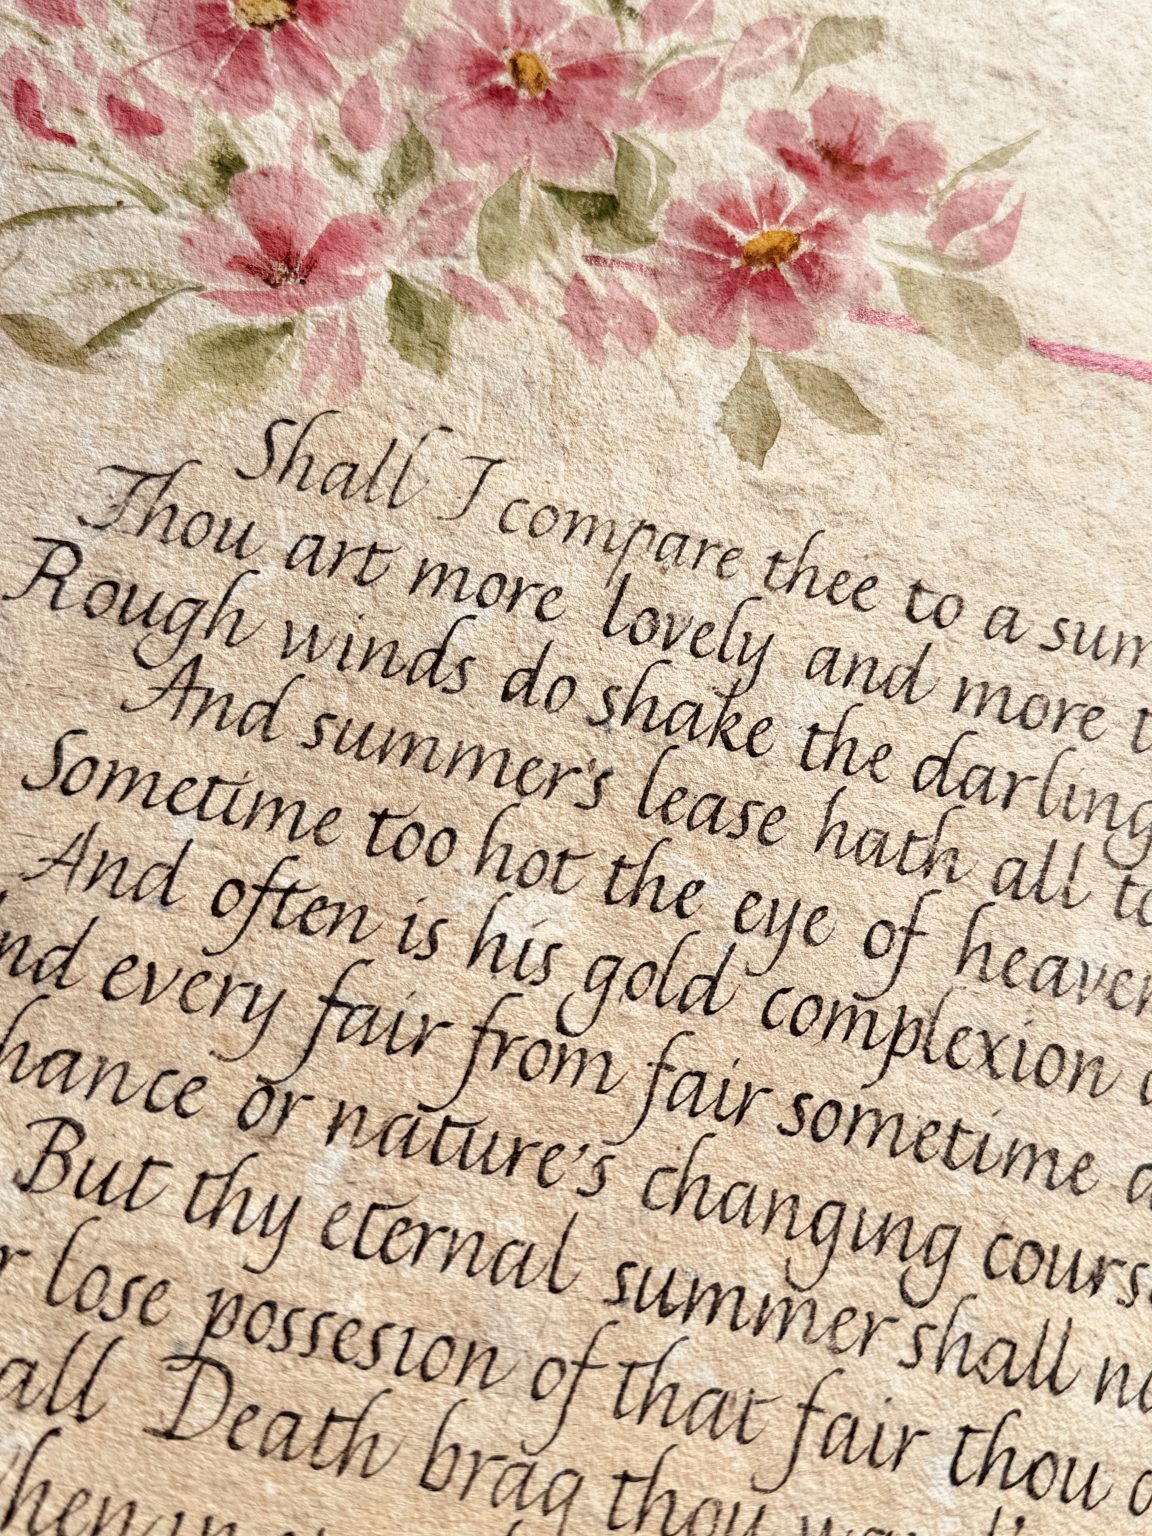 Shall I compare thee to a sum
Thou art more lovely and more t
Rough winds do shake the darling
And summer's lease hath all to
Sometime too hot the eye of heaven
And often is his gold complexion d
nd every fair from fair sometime d
hance or nature's changing cours
But thy eternal summer shall no
r lose possesion of that fair thou o
all Death brag thou